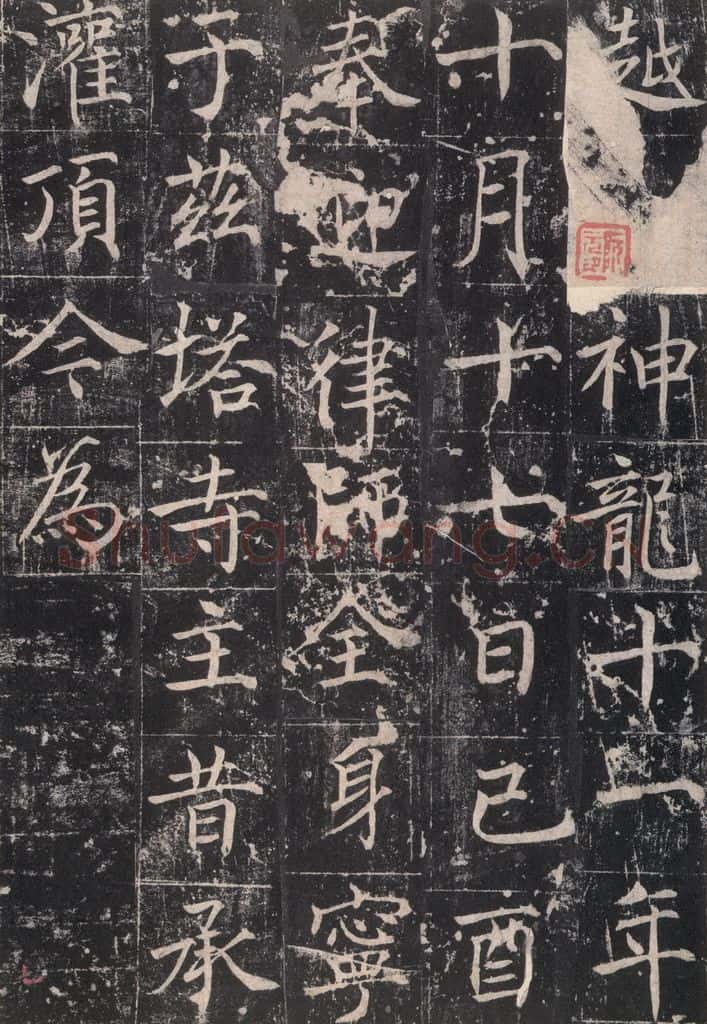 越神龍十一年
十月十七日己酉
奉迎律師全身寧
于茲塔寺主昔承
灌頂今為
shufawang.cn